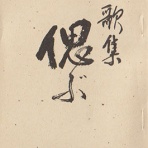 歌集
偲ぶ